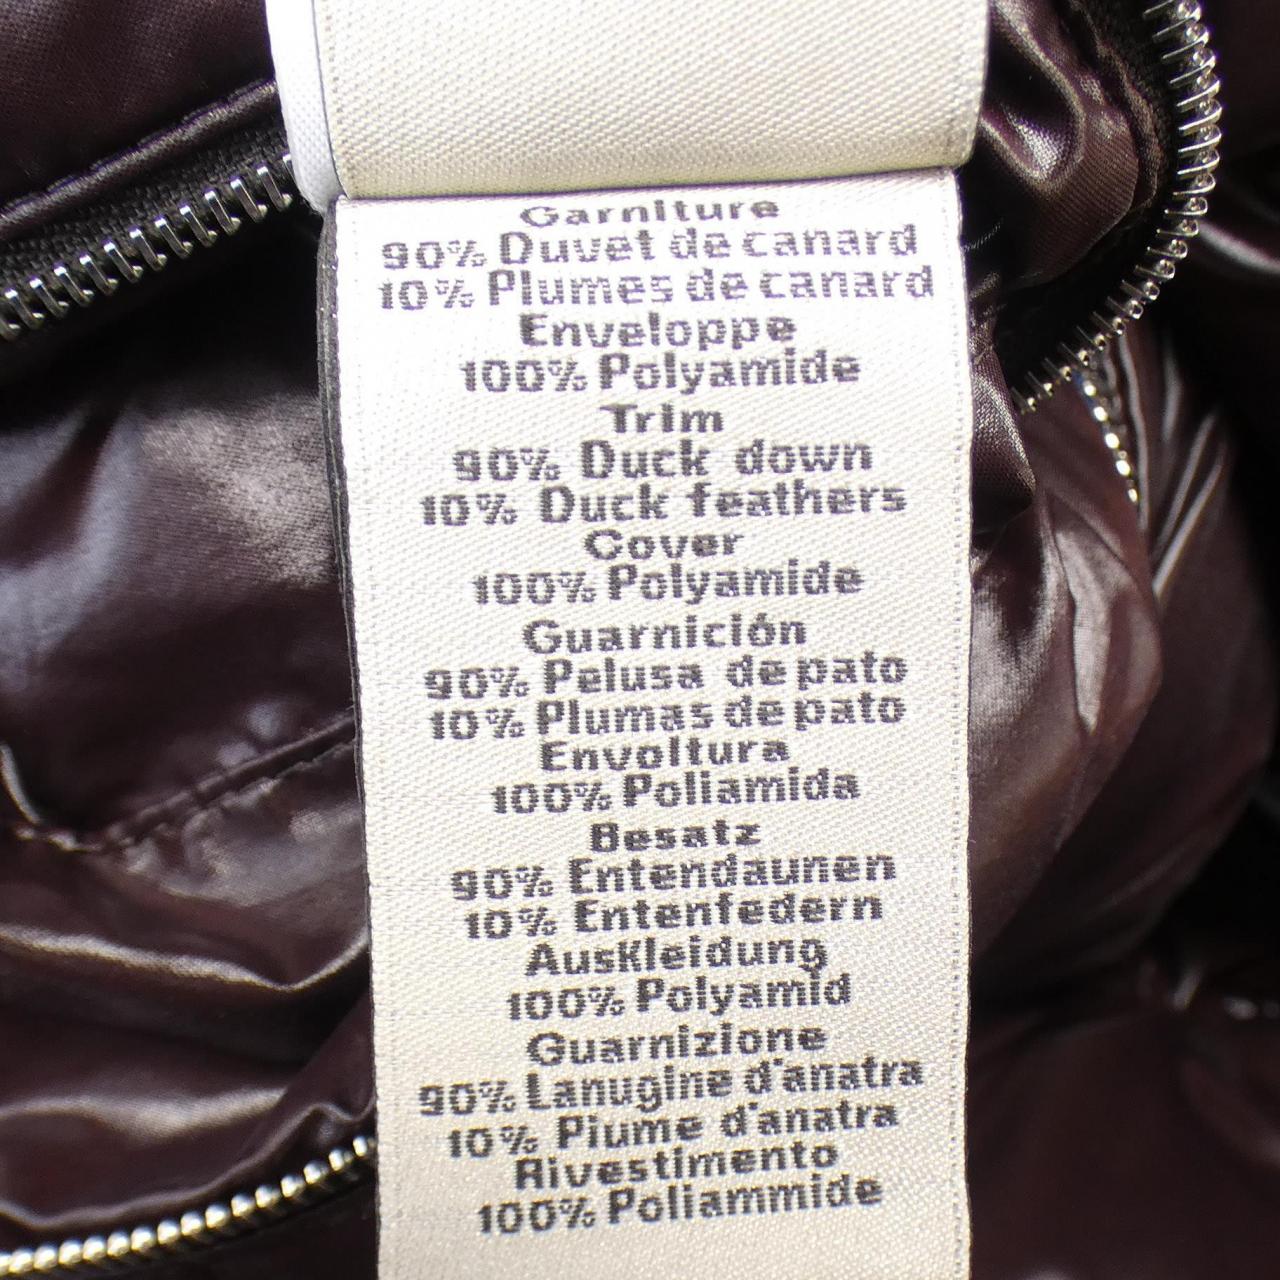 Garniture
90% Duvet de canard
10% Plumes de canard
Enveloppe
100% Polyamide
Trim
90% Duck down
10% Duck feathers
Cover
100% Polyamide
Guarnición
90% Pelusa de pato
10% Plumas de pato
Envoltura
100% Poliamida
Besatz
90% Entendaunen
10% Entenfedern
AusKleidung
100% Polyamid
Guarnizione
90% Lanugine d'anatra
10% Piume d'anatra
Rivestimento
100% Poliammide